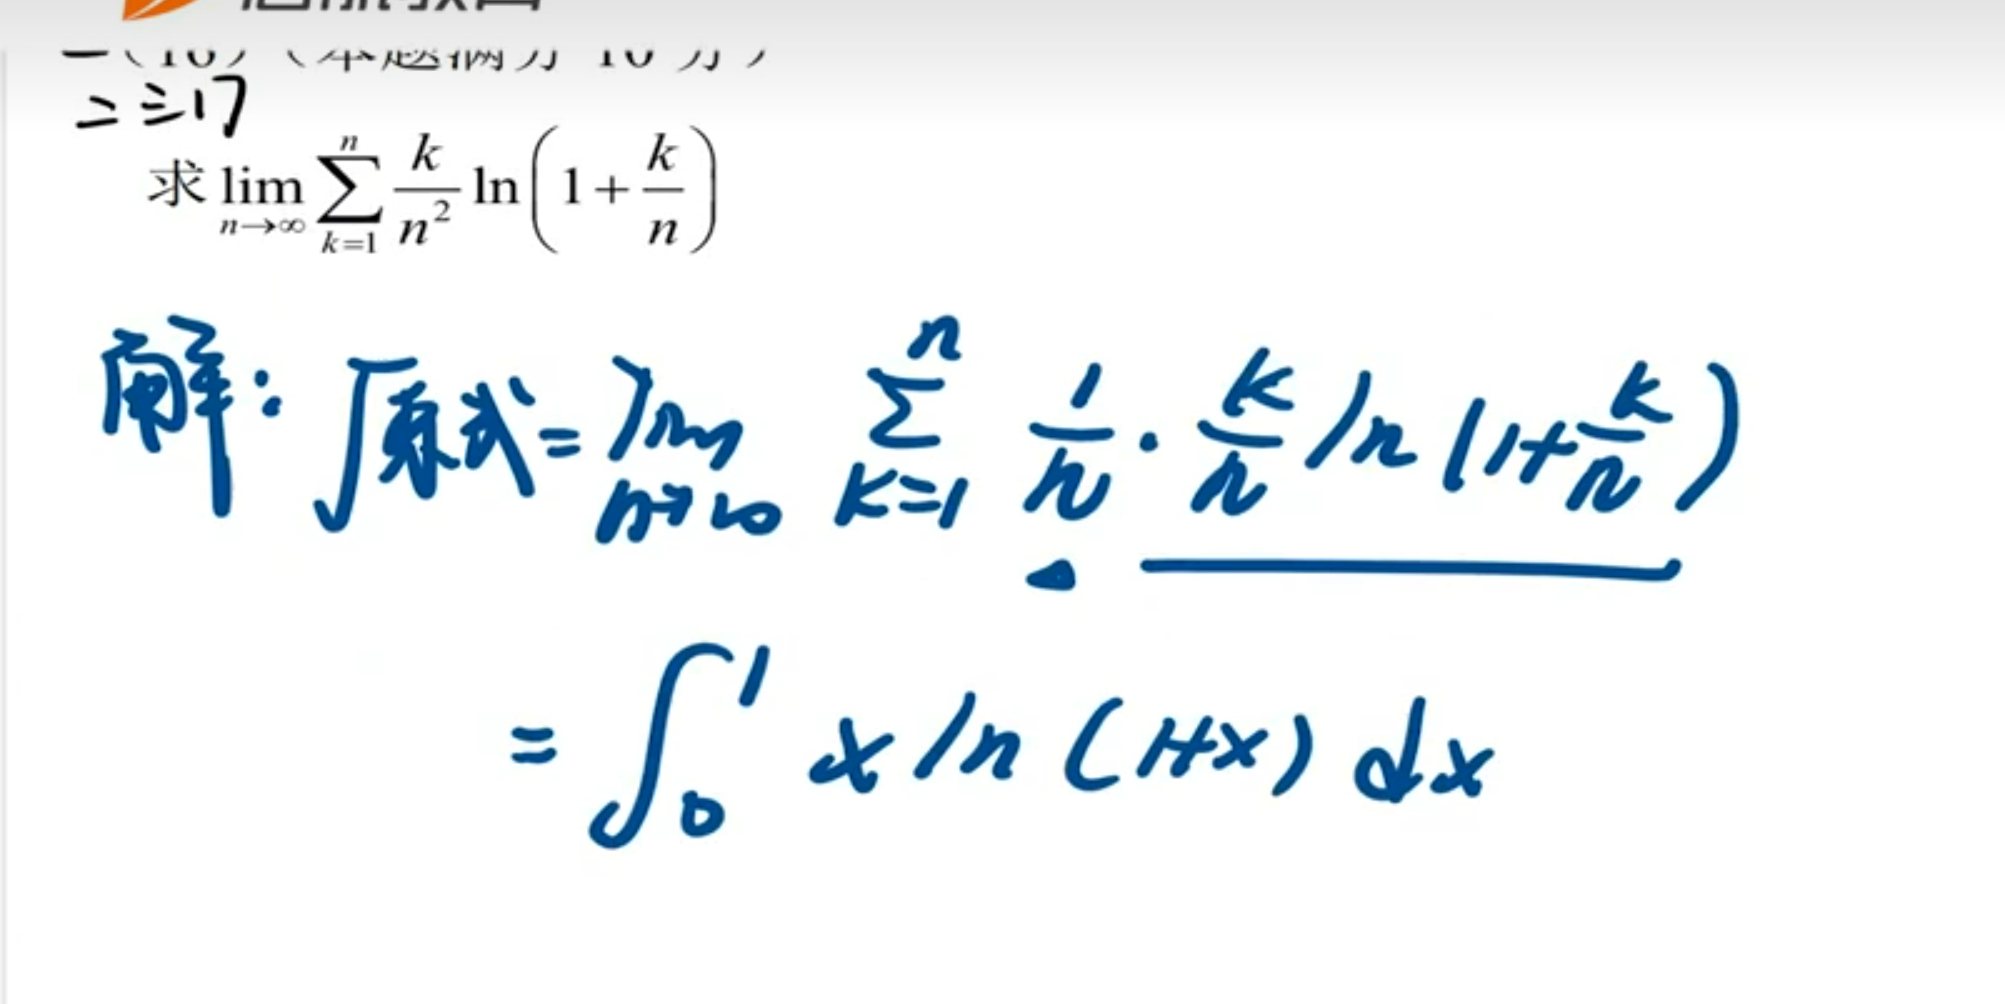 一(16)(本题满分 10 分)
二三17
求 lim_{n→∞} ∑_{k=1}^{n} k/n² ln(1+k/n)
解: 原式= lim_{n→∞} ∑_{k=1}^{n} 1/n · k/n ln(1+k/n)
= ∫_0^1 x ln(1+x) dx